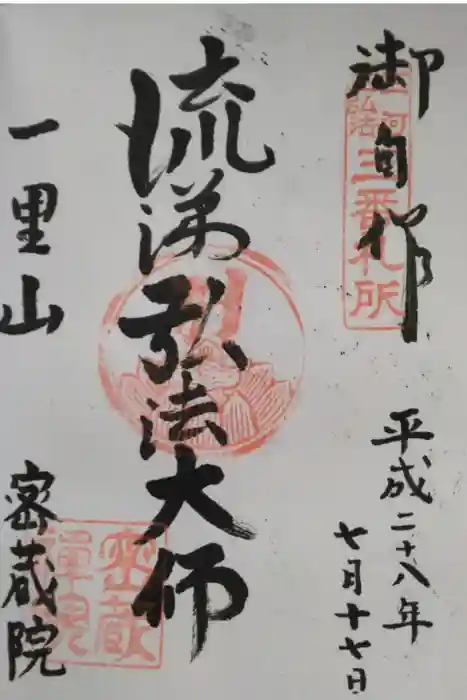 御自作
三河
弘法
三番札所
平成二十八年
七月十七日
流涕弘法大師
一里山
密蔵院
密蔵
禪院